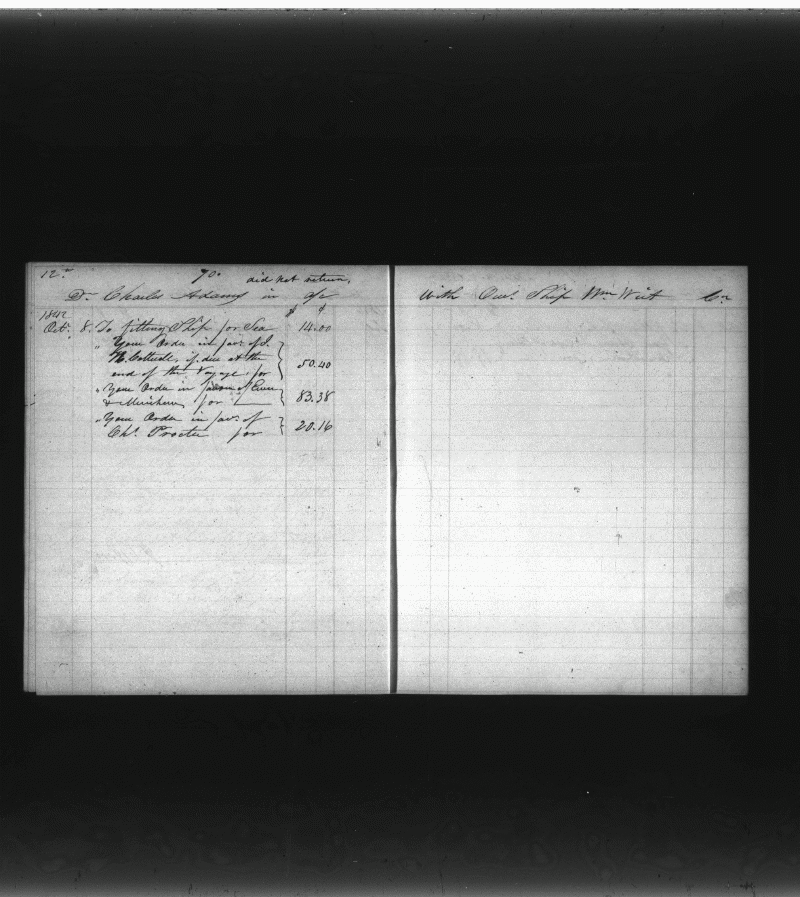 12
70. did not return,
Dr. Charles Adams in a/c
With Ship Wm Wirt Cr
1842 $ ¢
Oct. 8. To fitting Ship for Sea 14.00
" Your Order in fav. of
if due at the 50.40
end of the Voyage, for
" Your Order in favor of
& for 83.38
" Your Order in fav. of
Chs. Procter for 20.16